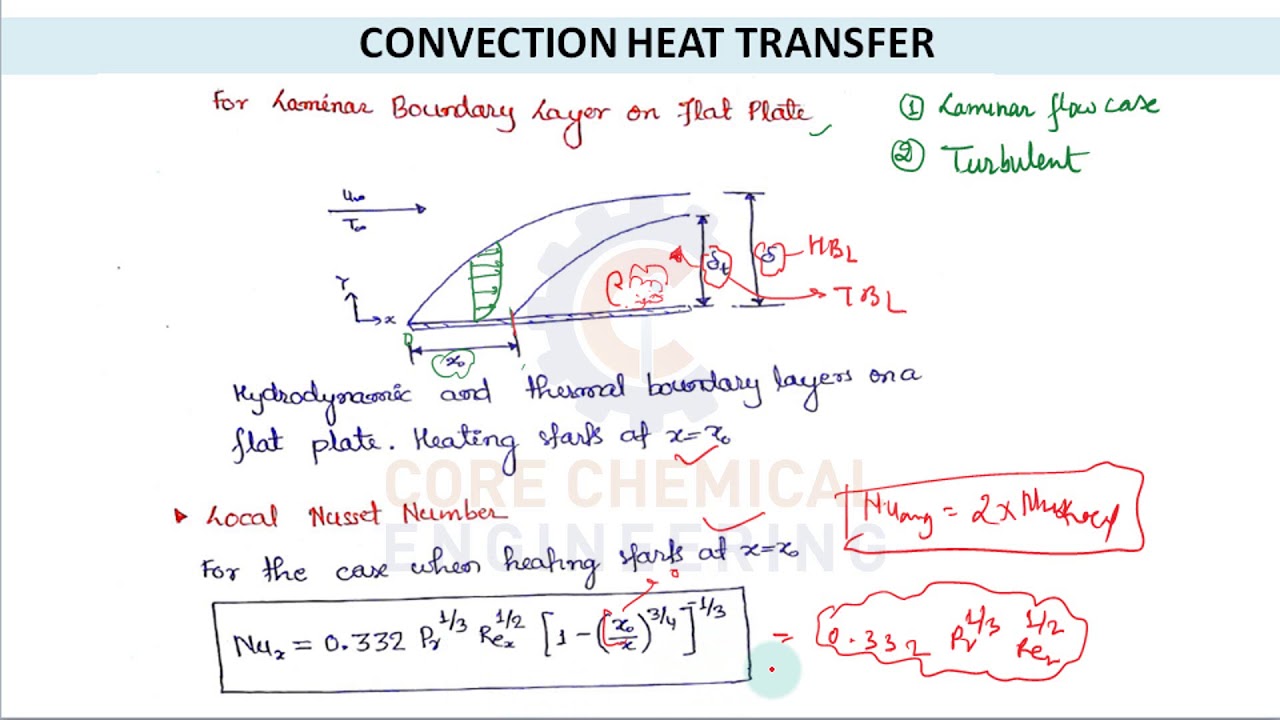 CONVECTION HEAT TRANSFER
For Laminar Boundary Layer on Flat Plate
① Laminar flow case
② Turbulent
u∞
T∞
Y
x
δt
δ
HBL
TBL
x₀
Hydrodynamic and thermal boundary layers on a
flat plate. Heating starts at x=x₀
CORE CHEMICAL
ENGINEERING
Local Nusset Number
Nuavg = 2x Nulocal
For the case when heating starts at x=x₀
0
Nuₓ = 0.332 Pr^1/3 Reₓ^1/2 [1 - (x₀/x)^3/4]^-1/3
= 0.332 Pr^1/3 Reₓ^1/2